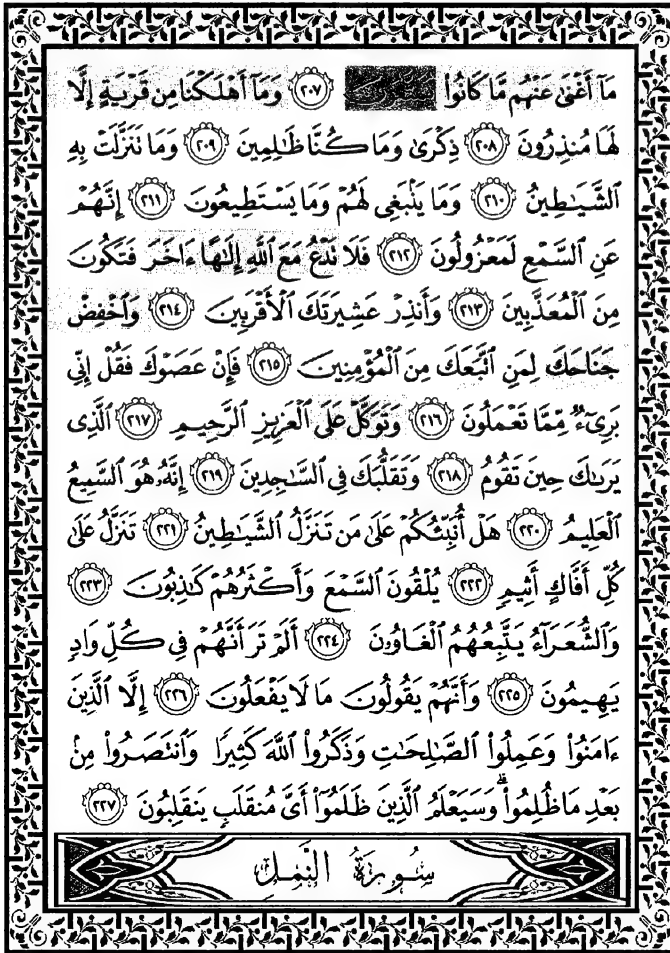 مَآ أَغْنَىٰ عَنْهُم مَّا كَانُوا۟ يُمَتَّعُونَ ٢٠٧ وَمَآ أَهْلَكْنَا مِن قَرْيَةٍ إِلَّا
لَهَا مُنذِرُونَ ٢٠٨ ذِكْرَىٰ وَمَا كُنَّا ظَـٰلِمِينَ ٢٠٩ وَمَا تَنَزَّلَتْ بِهِ
ٱلشَّيَـٰطِينُ ٢١٠ وَمَا يَنۢبَغِى لَهُمْ وَمَا يَسْتَطِيعُونَ ٢١١ إِنَّهُمْ
عَنِ ٱلسَّمْعِ لَمَعْزُولُونَ ٢١٢ فَلَا تَدْعُ مَعَ ٱللَّهِ إِلَـٰهًا ءَاخَرَ فَتَكُونَ
مِنَ ٱلْمُعَذَّبِينَ ٢١٣ وَأَنذِرْ عَشِيرَتَكَ ٱلْأَقْرَبِينَ ٢١٤ وَٱخْفِضْ
جَنَاحَكَ لِمَنِ ٱتَّبَعَكَ مِنَ ٱلْمُؤْمِنِينَ ٢١٥ فَإِنْ عَصَوْكَ فَقُلْ إِنِّى
بَرِىٓءٌ مِّمَّا تَعْمَلُونَ ٢١٦ وَتَوَكَّلْ عَلَى ٱلْعَزِيزِ ٱلرَّحِيمِ ٢١٧ ٱلَّذِى
يَرَىٰكَ حِينَ تَقُومُ ٢١٨ وَتَقَلُّبَكَ فِى ٱلسَّـٰجِدِينَ ٢١٩ إِنَّهُۥ هُوَ ٱلسَّمِيعُ
ٱلْعَلِيمُ ٢٢٠ هَلْ أُنَبِّئُكُمْ عَلَىٰ مَن تَنَزَّلُ ٱلشَّيَـٰطِينُ ٢٢١ تَنَزَّلُ عَلَىٰ
كُلِّ أَفَّاكٍ أَثِيمٍ ٢٢٢ يُلْقُونَ ٱلسَّمْعَ وَأَكْثَرُهُمْ كَـٰذِبُونَ ٢٢٣
وَٱلشُّعَرَآءُ يَتَّبِعُهُمُ ٱلْغَاوُۥنَ ٢٢٤ أَلَمْ تَرَ أَنَّهُمْ فِى كُلِّ وَادٍ
يَهِيمُونَ ٢٢٥ وَأَنَّهُمْ يَقُولُونَ مَا لَا يَفْعَلُونَ ٢٢٦ إِلَّا ٱلَّذِينَ
ءَامَنُوا۟ وَعَمِلُوا۟ ٱلصَّـٰلِحَـٰتِ وَذَكَرُوا۟ ٱللَّهَ كَثِيرًا وَٱنتَصَرُوا۟ مِنۢ
بَعْدِ مَا ظُلِمُوا۟ ۗ وَسَيَعْلَمُ ٱلَّذِينَ ظَلَمُوٓا۟ أَىَّ مُنقَلَبٍ يَنقَلِبُونَ ٢٢٧
سُورَةُ النَّمْلِ